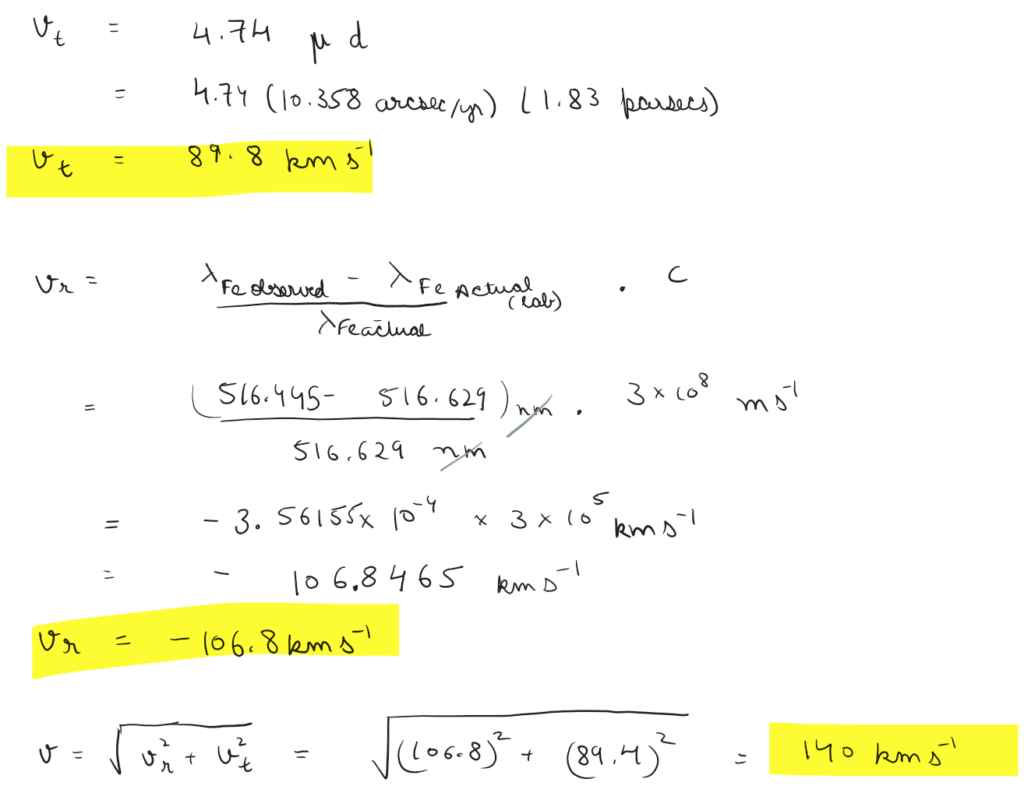 v_t = 4.74 μ d
= 4.74 (10.358 arcsec/yr) (1.83 parsecs)
v_t = 89.8 km s⁻¹
v_r = (λ Fe observed - λ Fe Actual (lab)) / λ Fe actual . c
= (516.445 - 516.629) nm / 516.629 nm . 3 × 10⁸ m s⁻¹
= - 3.56155 × 10⁻⁴ × 3 × 10⁵ km s⁻¹
= - 106.8465 km s⁻¹
v_r = - 106.8 km s⁻¹
v = √(v_r² + v_t²) = √((106.8)² + (89.4)²) = 140 km s⁻¹